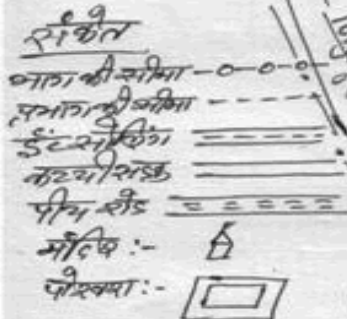 संकेत
भाग की सीमा
प्रभाग की सीमा
ईंट सोलिंग
कच्ची सड़क
पीच रोड
मंदिर :-
पोखरा :-